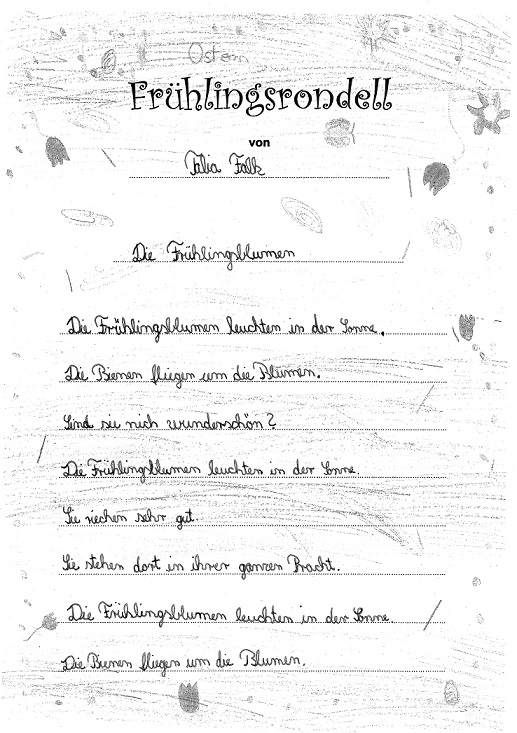 Ostern
Frühlingsrondell
von
Talia Falk
Die Frühlingsblumen
Die Frühlingsblumen leuchten in der Sonne.
Die Bienen fliegen um die Blumen.
Sind sie nich wunderschön?
Die Frühlingsblumen leuchten in der Sonne.
Sie riechen sehr gut.
Sie stehen dort in ihrer ganzen Pracht.
Die Frühlingsblumen leuchten in der Sonne.
Die Bienen fliegen um die Blumen.